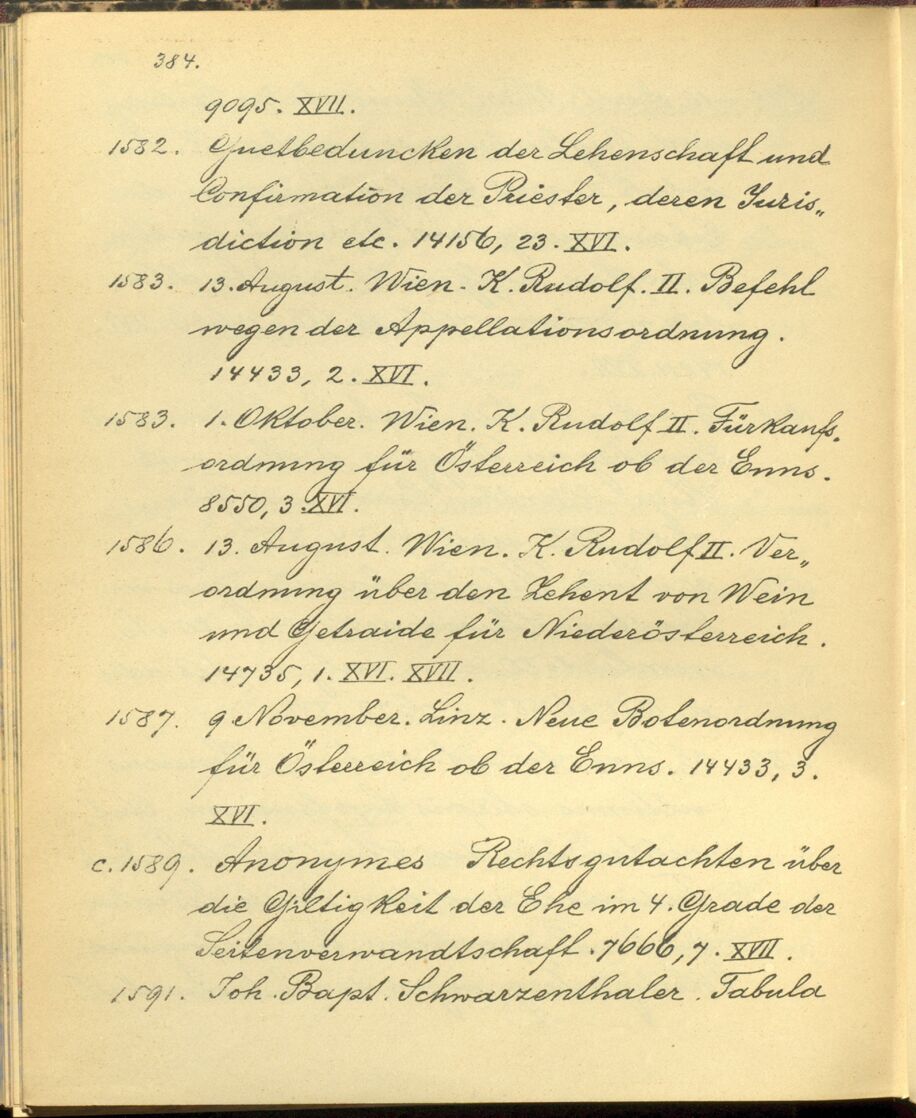 384.
9095. XVII.
1582. Guetbeduncken der Lehenschaft und
Confirmation der Priester, deren Juris„
diction etc. 14156, 23. XVI.
1583. 13. August. Wien. K. Rudolf. II. Befehl
wegen der Appellationsordnung.
14433, 2. XVI.
1583. 1. Oktober. Wien. K. Rudolf II. Fürkaufs.
ordnung für Österreich ob der Enns.
8550, 3. XVI.
1586. 13. August. Wien. K. Rudolf II. Ver„
ordnung über den Zehent von Wein
und Getraide für Niederösterreich.
14735, 1. XVI. XVII.
1587. 9 November. Linz. Neue Botenordnung
für Österreich ob der Enns. 14433, 3.
XVI.
c. 1589. Anonymes Rechtsgutachten über
die Giltigkeit der Ehe im 4. Grade der
Seitenverwandtschaft. 7666, 7. XVII.
1591. Joh. Bapt. Schwarzenthaler. Tabula